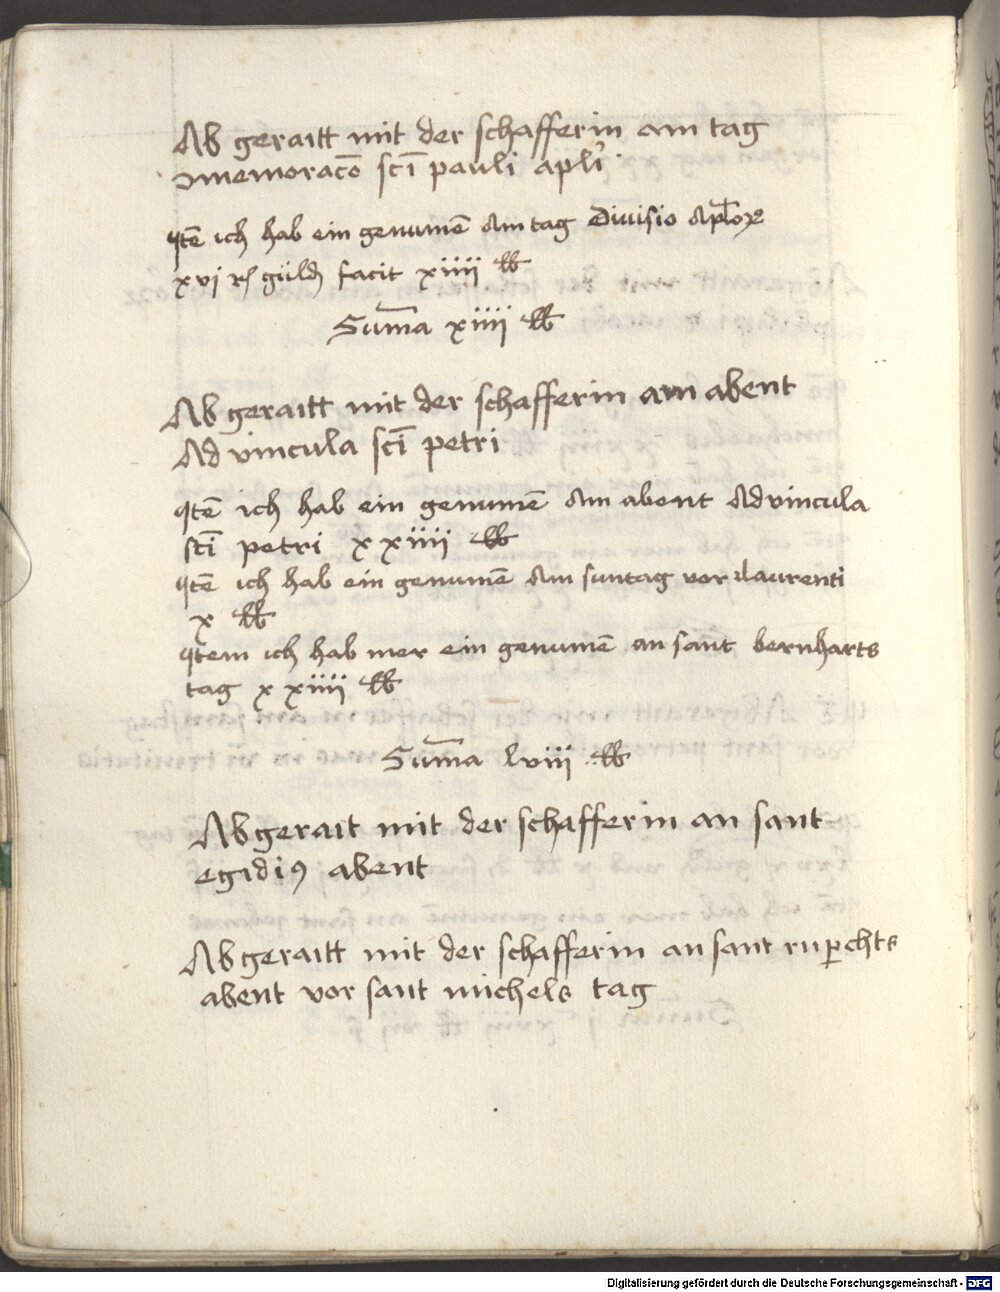 Ab geraitt mit der schafferin am tag
memoracō scī pauli apli
Itē ich hab ein genumē Am tag Diuisio Aplorꝝ
xvj rꝭ guld facit xiiii ℔
Sum̄a xiiii ℔
Ab geraitt mit der schafferin am abent
Ad vincula scī petri
Itē ich hab ein genumē Am abent Ad vincula
scī petri xxiiii ℔
Itē ich hab ein genumē Am suntag vor laurenti
x ℔
Item ich hab mer ein genumē an sant bernharts
tag xxiiii ℔
Sum̄a lviii ℔
Ab gerait mit der schafferin an sant
egidiꝰ abent
Ab geraitt mit der schafferin an sant ruꝑchts
abent vor sant michels tag
Digitalisierung gefördert durch die Deutsche Forschungsgemeinschaft - DFG